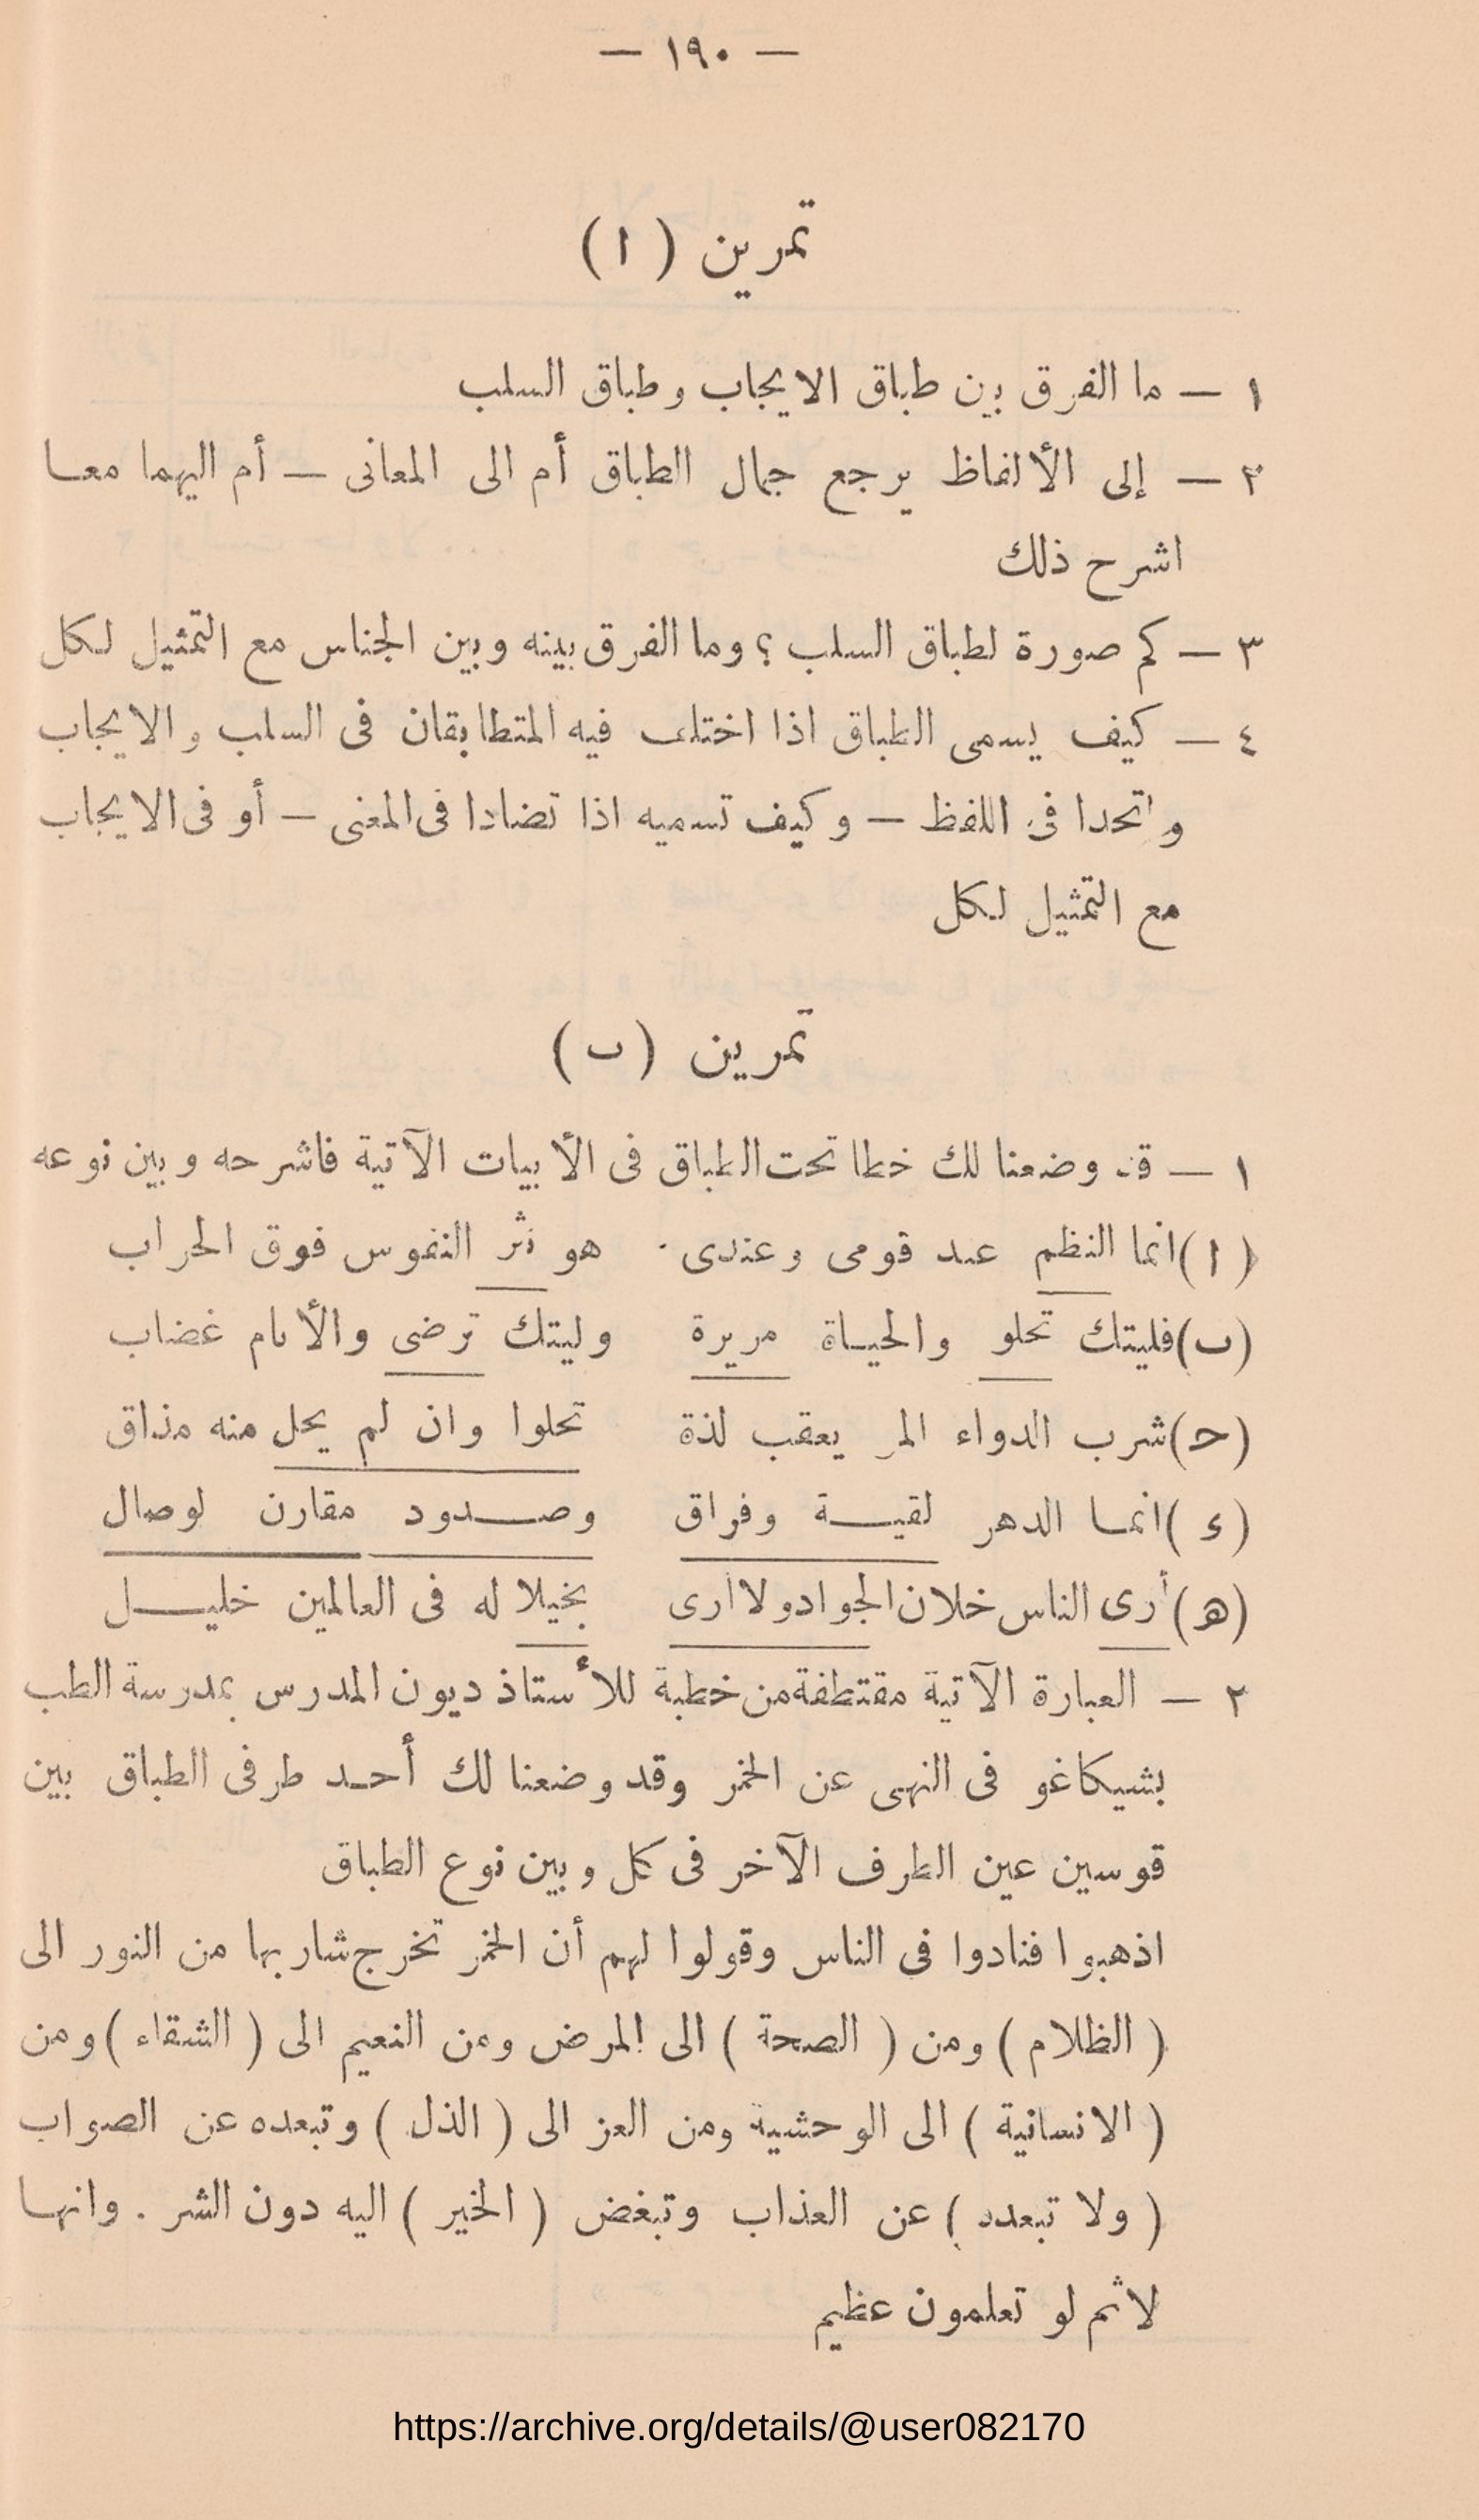 — ١٩٠ —
تمرين ( ا )
١ — ما الفرق بين طباق الايجاب وطباق السلب
٢ — إلى الألفاظ يرجع جمال الطباق أم الى المعانى — أم اليهما معا
اشرح ذلك
٣ — كم صورة لطباق السلب ؟ وما الفرق بينه وبين الجناس مع التمثيل لكل
٤ — كيف يسمى الطباق اذا اختلف فيه المتطابقان فى السلب والايجاب
واتحدا فى اللفظ — وكيف تسميه اذا تضادا فى المعنى — أو فى الايجاب
مع التمثيل لكل
تمرين ( ب )
١ — قد وضعنا لك خطا تحت الطباق فى الأبيات الآتية فاشرحه وبين نوعه
( ا ) انما النظم عند قومى وعندى هو نثر النفوس فوق الحراب
(ب) فليتك تحلو والحياة مريرة وليتك ترضى والأنام غضاب
(ح) شرب الدواء المر يعقب لذة تحلوا وان لم يحل منه مذاق
(ء ) انما الدهر لقية وفراق وصدود مقارن لوصال
(ه) أرى الناس خلان الجواد ولا أرى بخيلا له فى العالمين خليل
٢ — العبارة الآتية مقتطفة من خطبة للأستاذ ديون المدرس بمدرسة الطب
بشيكاغو فى النهى عن الخمر وقد وضعنا لك أحد طرفى الطباق بين
قوسين عين الطرف الآخر فى كل وبين نوع الطباق
اذهبوا فنادوا فى الناس وقولوا لهم أن الخمر تخرج شاربها من النور الى
( الظلام ) ومن ( الصحة ) الى المرض ومن النعيم الى ( الشقاء ) ومن
( الانسانية ) الى الوحشية ومن العز الى ( الذل ) وتبعده عن الصواب
( ولا تبعده ) عن العذاب وتبغض ( الخير ) اليه دون الشر . وانها
لاثم لو تعلمون عظيم
https://archive.org/details/@user082170